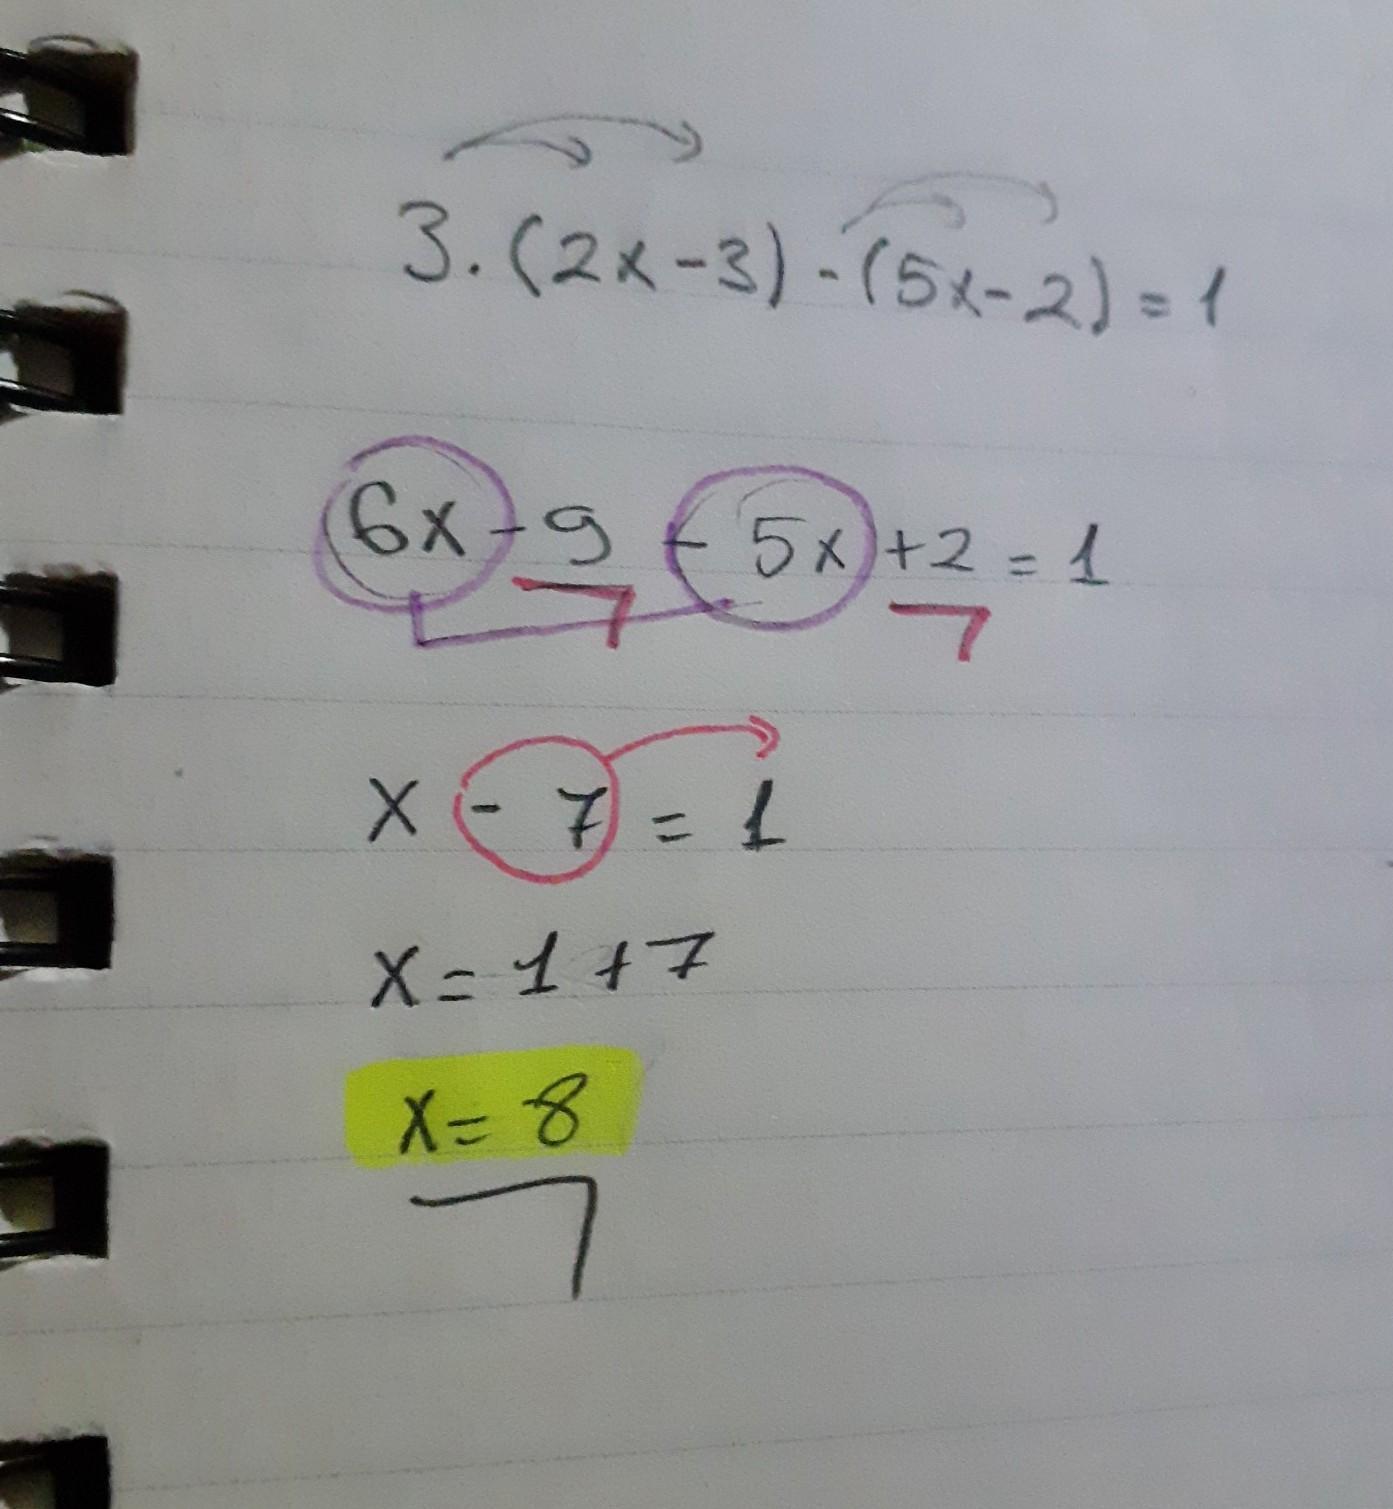 3.(2x-3)-(5x-2)=1
6x-9-5x+2=1
x-7=1
x=1+7
x=8